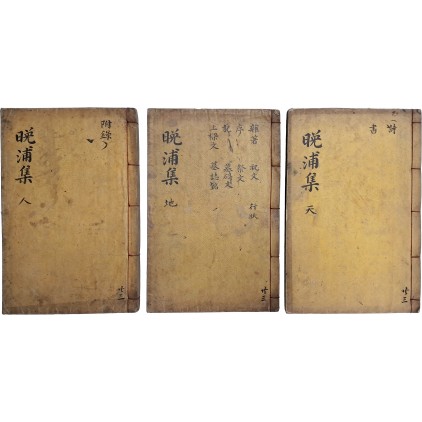 詩
書
晩浦集 天
共三
雜著 祝文 行狀
序 祭文
記 墓碣文
上樑文 墓誌銘
晩浦集 地
共三
附錄
晩浦集 人
共三